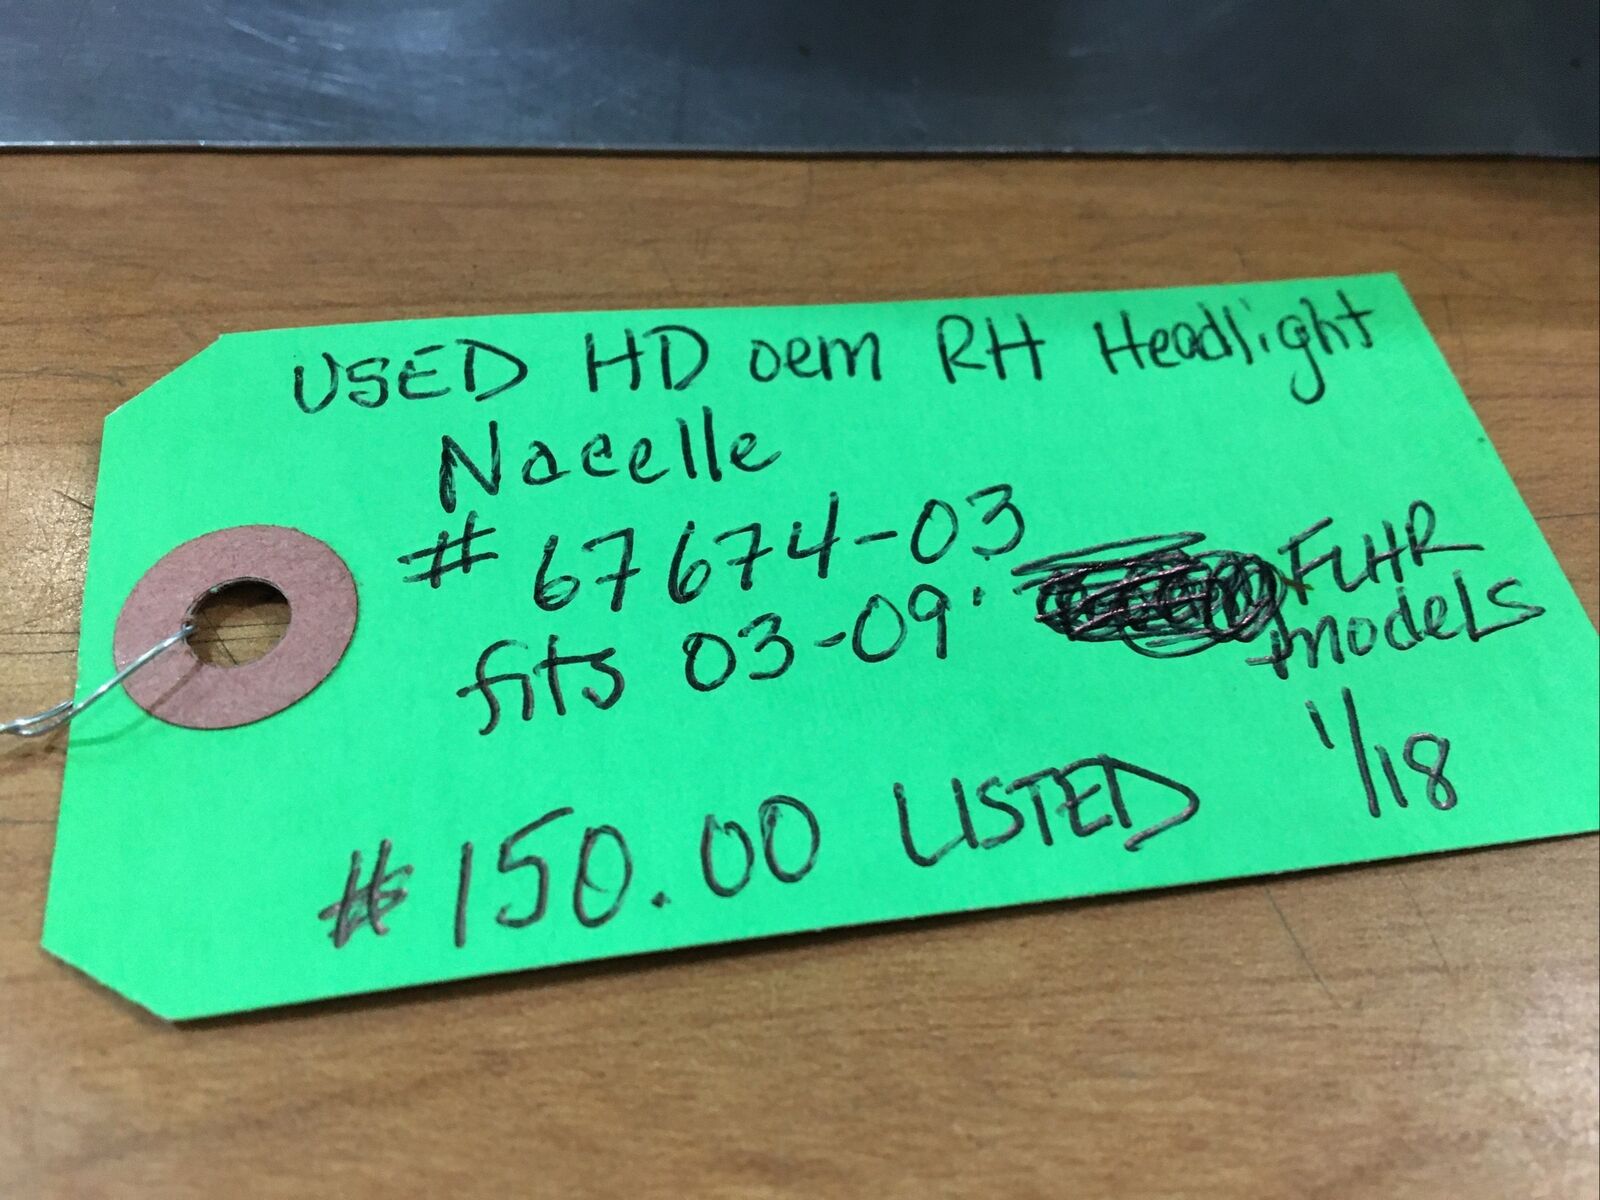 USED HD oem RH Headlight
Nacelle
# 67674-03
fits 03-09' FLHR
models
1/18
$150.00 LISTED